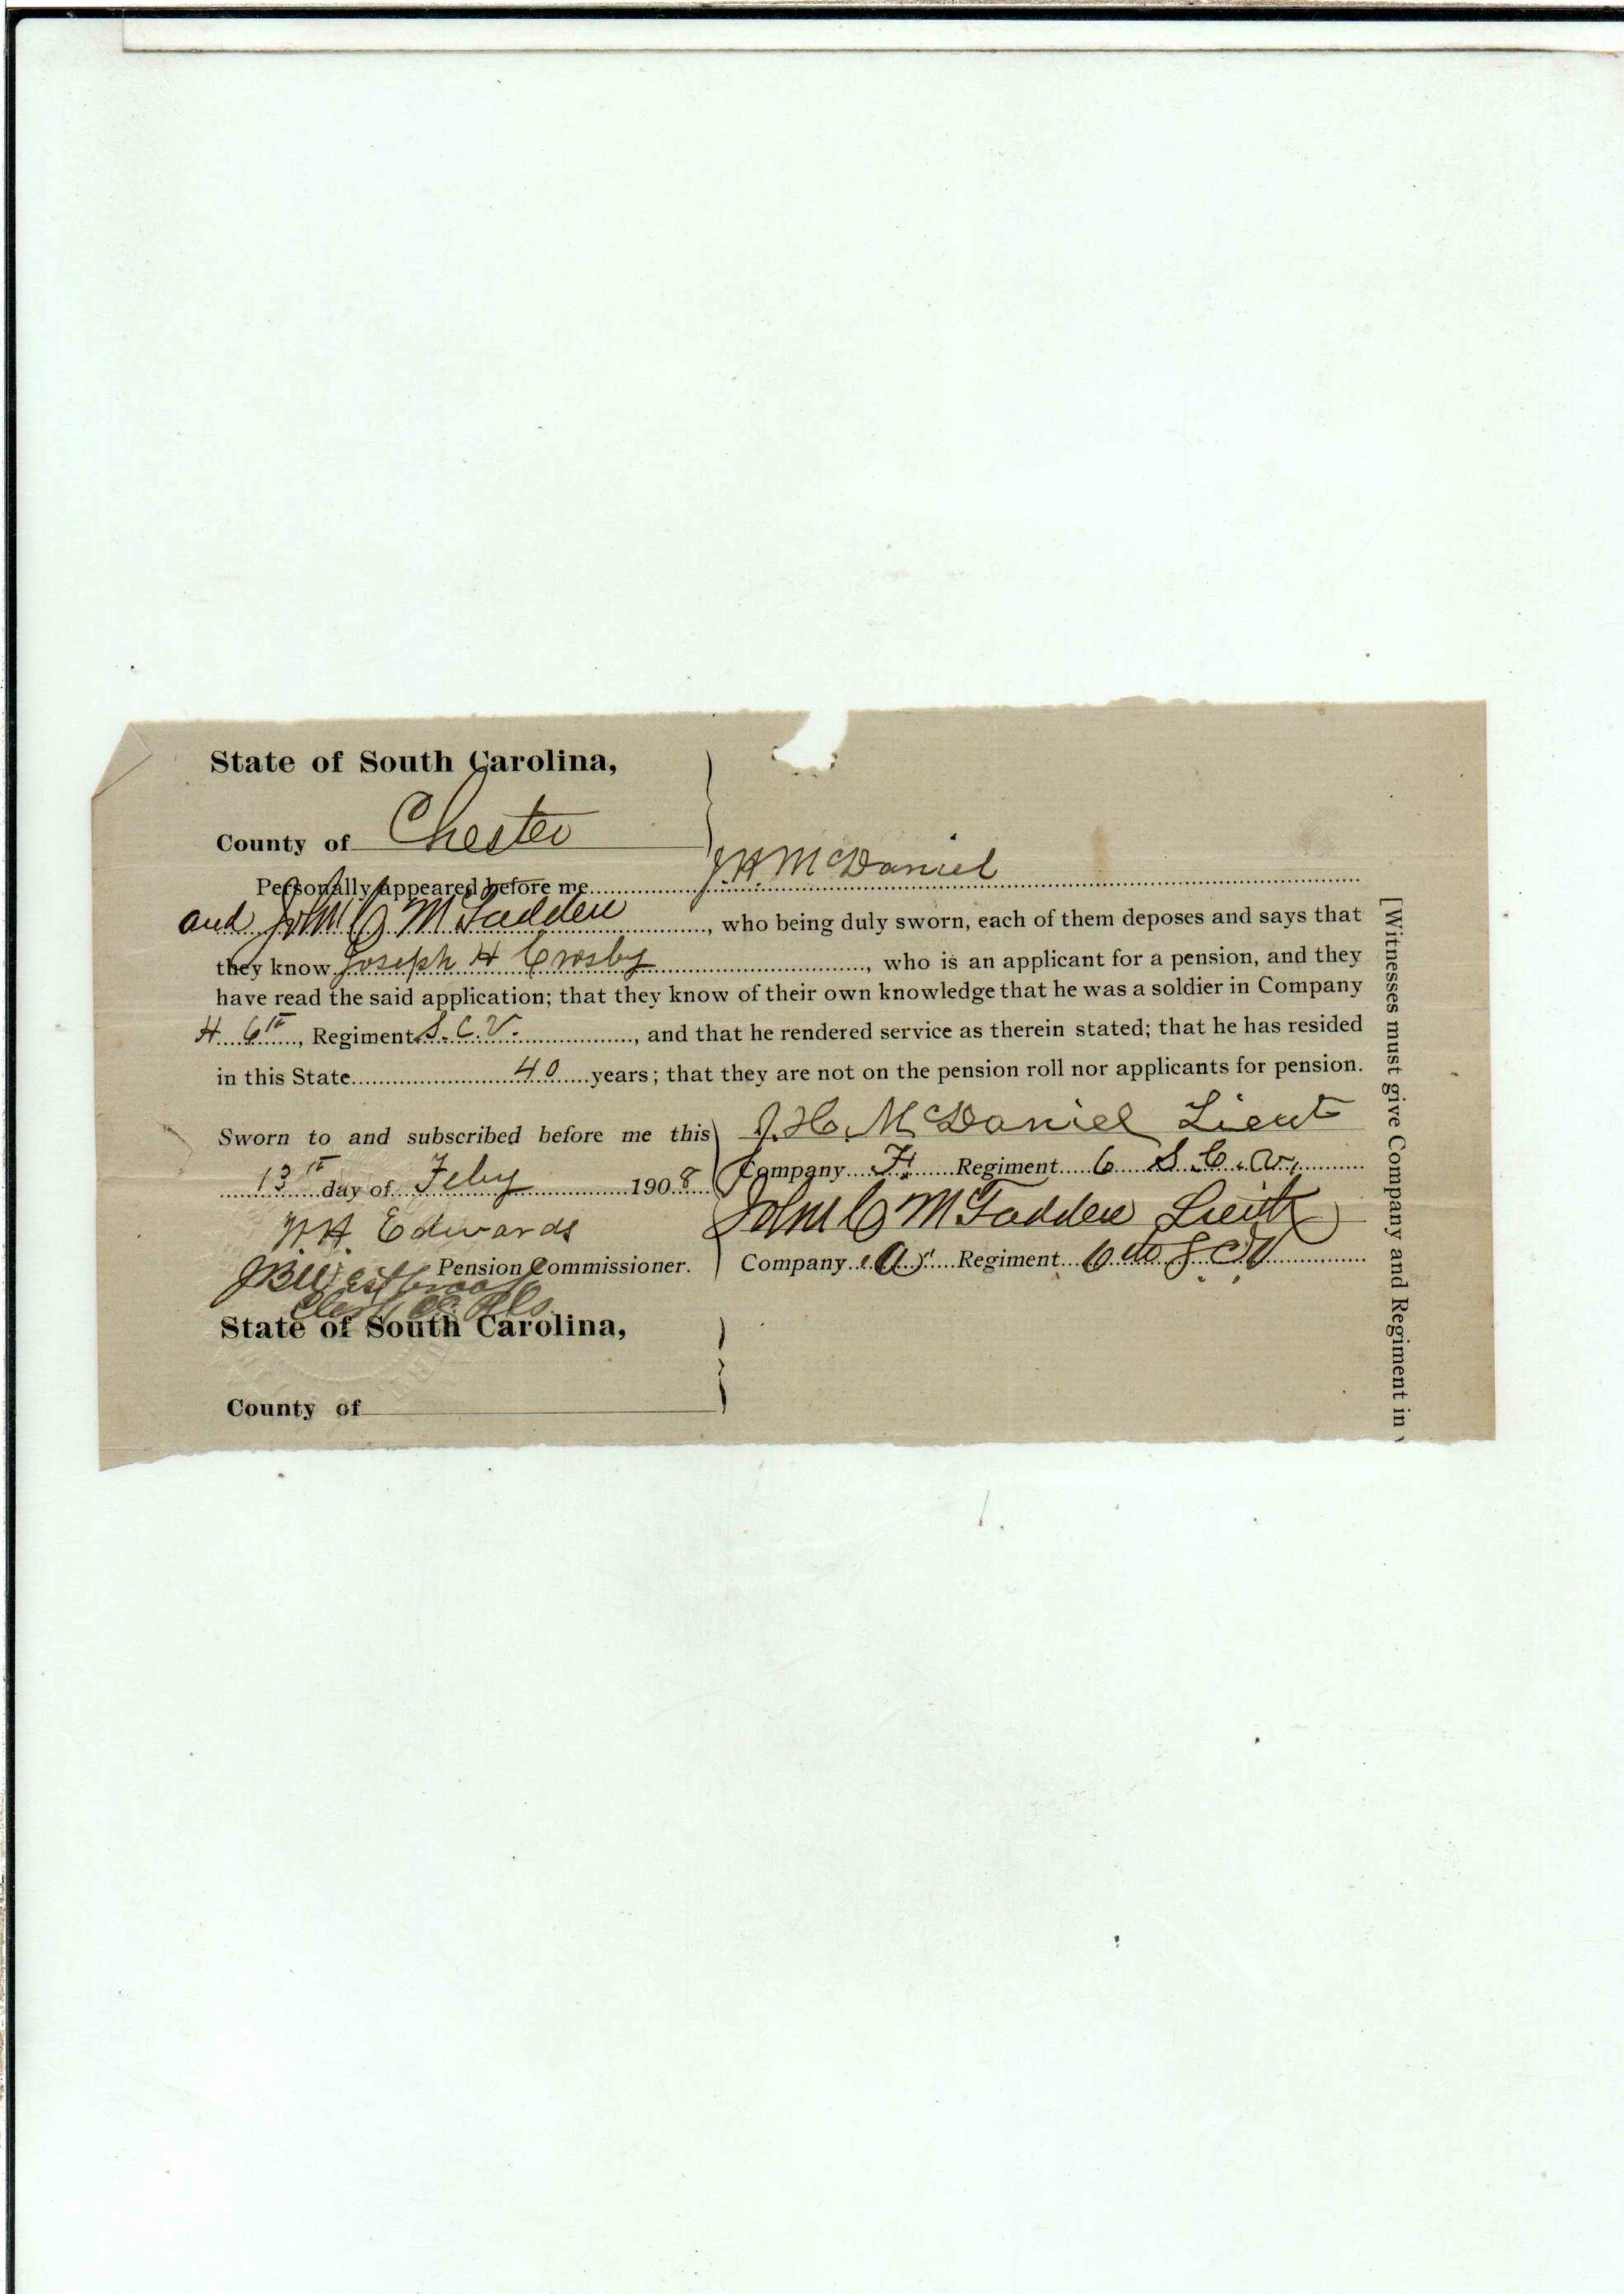 State of South Carolina,
County of Chester
Personally appeared before me J. H. McDaniel
and John C McFadden, who being duly sworn, each of them deposes and says that
they know Joseph H Crosby, who is an applicant for a pension, and they
have read the said application; that they know of their own knowledge that he was a soldier in Company
H 6th, Regiment S.C.V., and that he rendered service as therein stated; that he has resided
in this State 40 years; that they are not on the pension roll nor applicants for pension.
Sworn to and subscribed before me this
13th day of Feby 1908
W. H. Edwards
Pension Commissioner.
J B Westbrook
Clerk
J. H. McDaniel Lieut
Company F. Regiment 6 S.C.V.
John C McFadden Lieut
Company "A" Regiment 6th S.C.V
State of South Carolina,
County of
[Witnesses must give Company and Regiment in